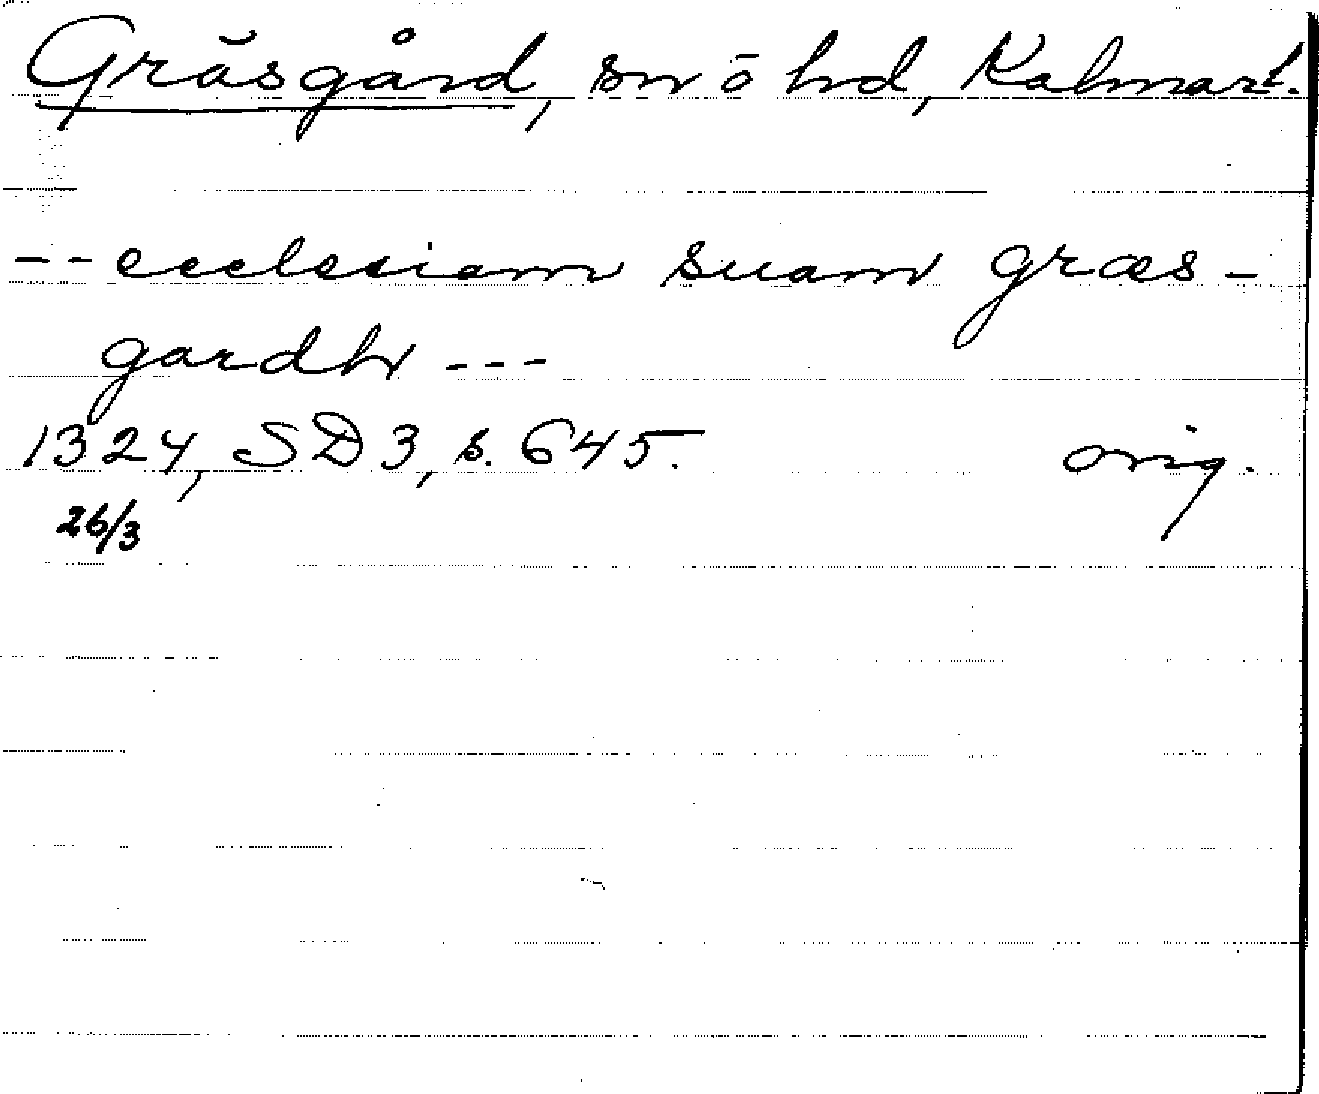 Gräsgård, sn o hd, Kalmar l.
-- ecclesiam suam græs-
gardh ---
1324, SD 3, s. 645. orig.
26/3